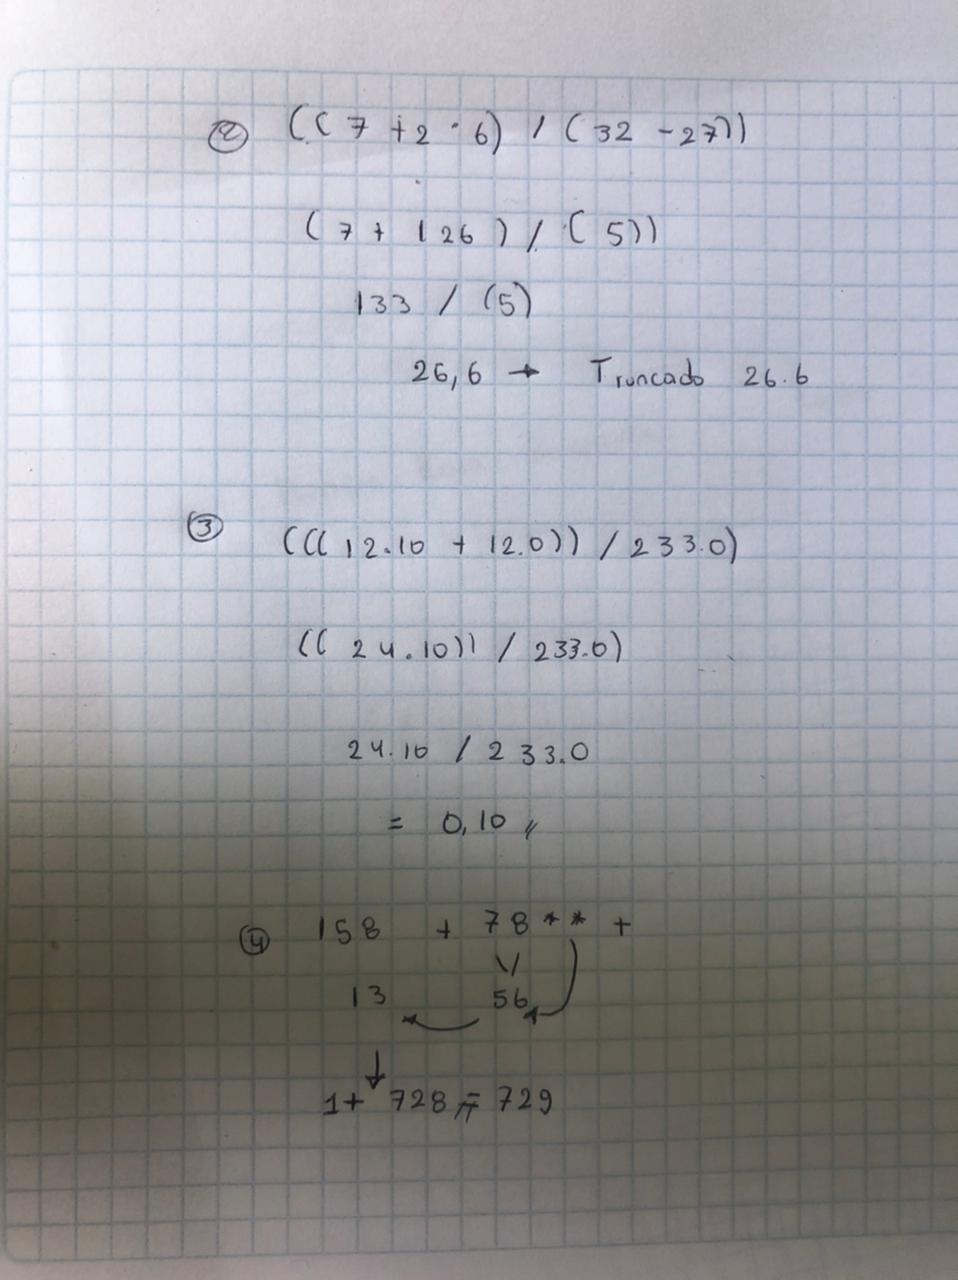 ② ((7 + 2 · 6) / (32 - 27))
(7 + 126) / (5))
133 / (5)
26,6 → Truncado 26.6
③ (((12.10 + 12.0)) / 233.0)
((24.10)) / 233.0)
24.10 / 233.0
= 0,10 //
④ 158 + 78 * * +
13 56
1 + 728 = 729